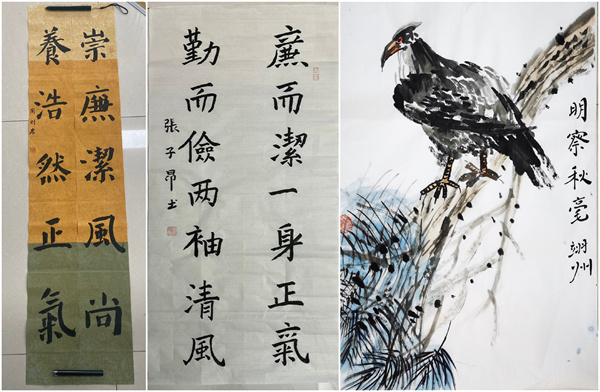 崇廉潔風尚
養浩然正氣
廉而潔一身正氣
勤而儉两袖清風
張子昂书
明察秋毫 翊州